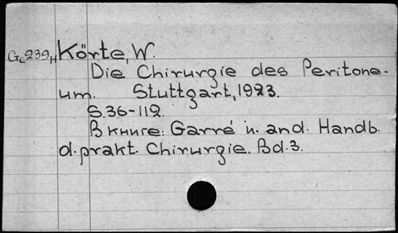 Gc239H Körte, W.
Die Chirurgie des Peritone-
um. Stuttgart, 1923.
S.36-112.
В книге: Garré u. and. Handb.
d. prakt. Chirurgie. Bd. 3.